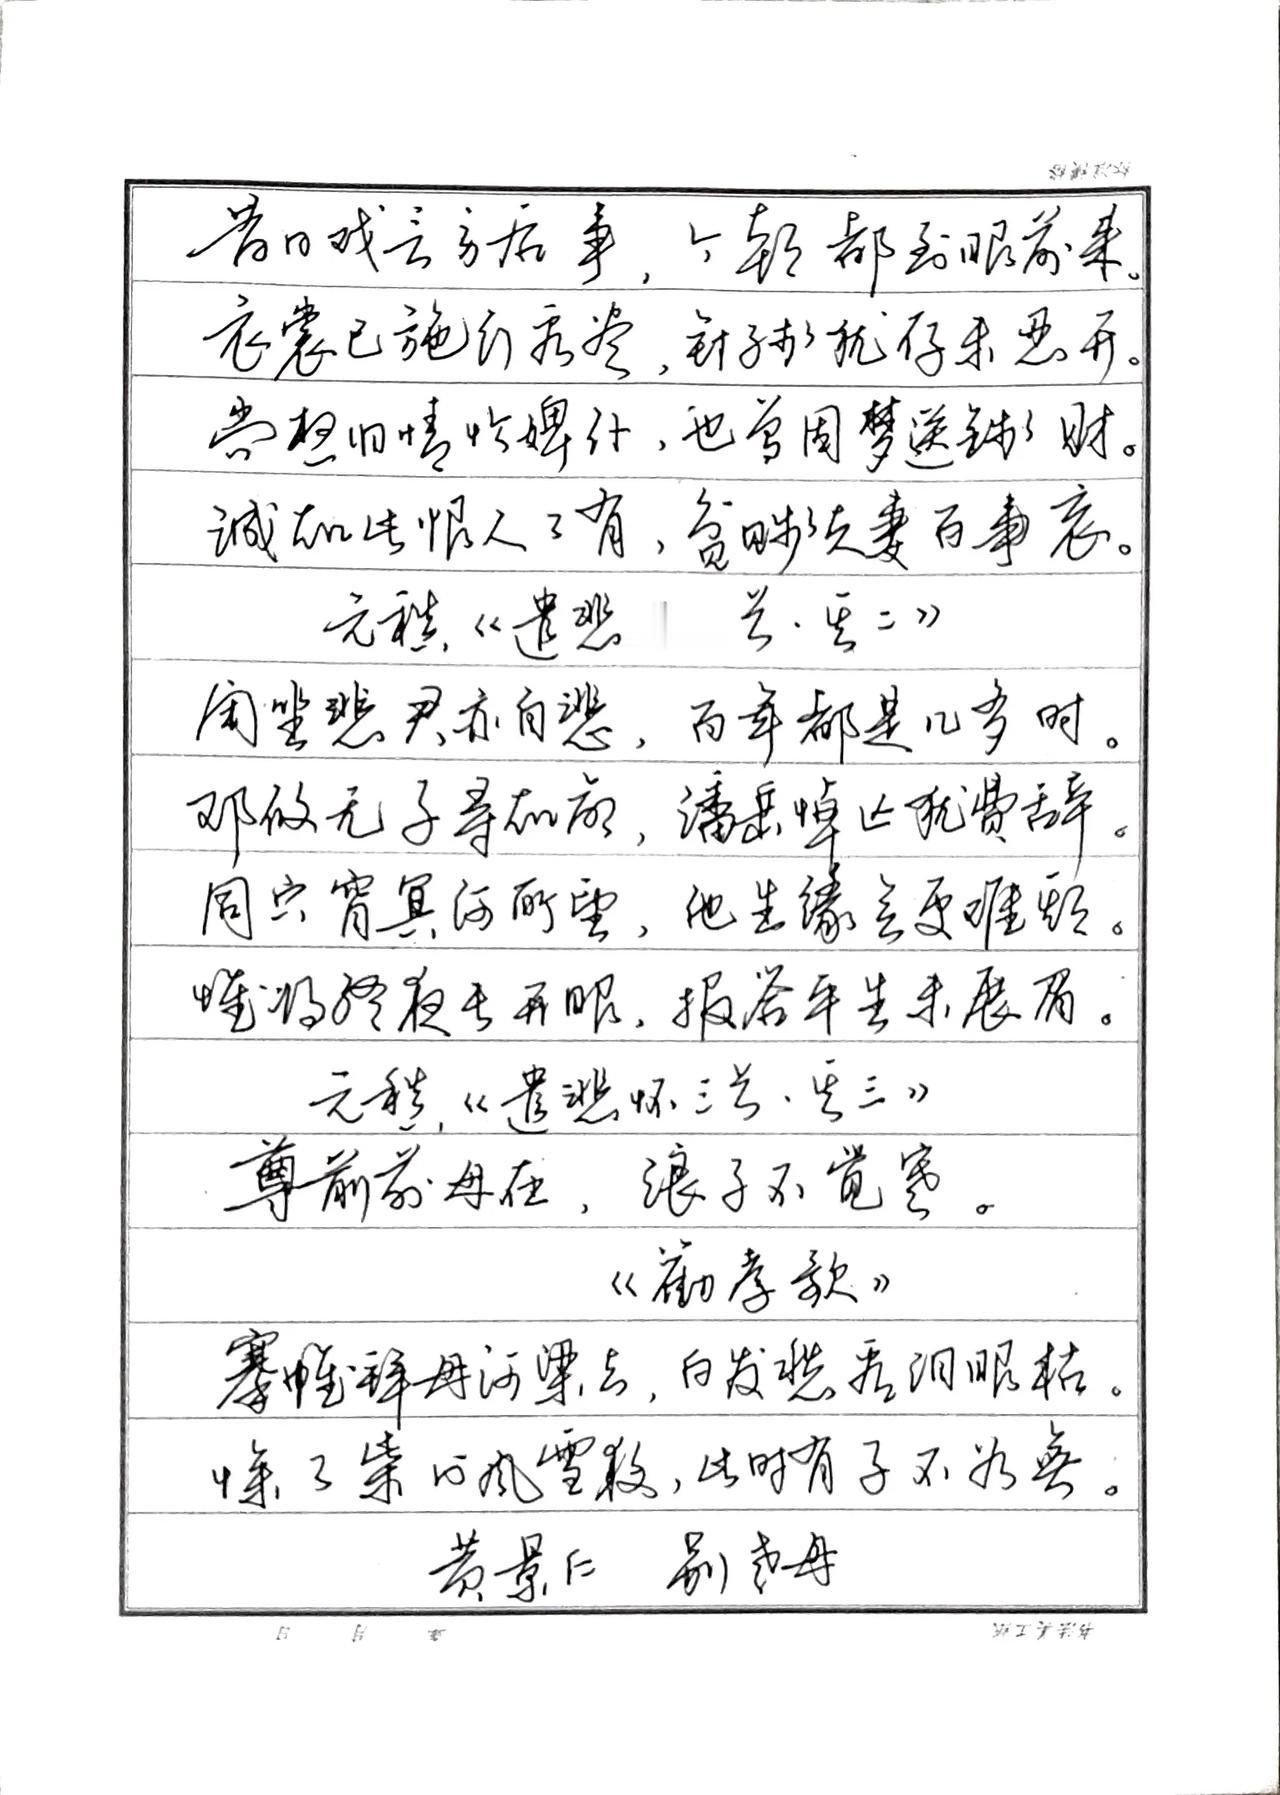 昔日戏言身后事，今朝都到眼前来。
衣裳已施行看尽，针线犹存未忍开。
尚想旧情怜婢仆，也曾因梦送钱财。
诚知此恨人人有，贫贱夫妻百事哀。
元稹《遣悲 首·其二》
闲坐悲君亦自悲，百年都是几多时。
邓攸无子寻知命，潘岳悼亡犹费辞。
同穴窅冥何所望，他生缘会更难期。
惟将终夜长开眼，报答平生未展眉。
元稹《遣悲怀三首·其三》
尊前慈母在，浪子不觉寒。
《劝孝歌》
搴帷拜母河梁去，白发愁看泪眼枯。
惨惨柴门风雪夜，此时有子不如无。
黄景仁 别老母
年 月 日